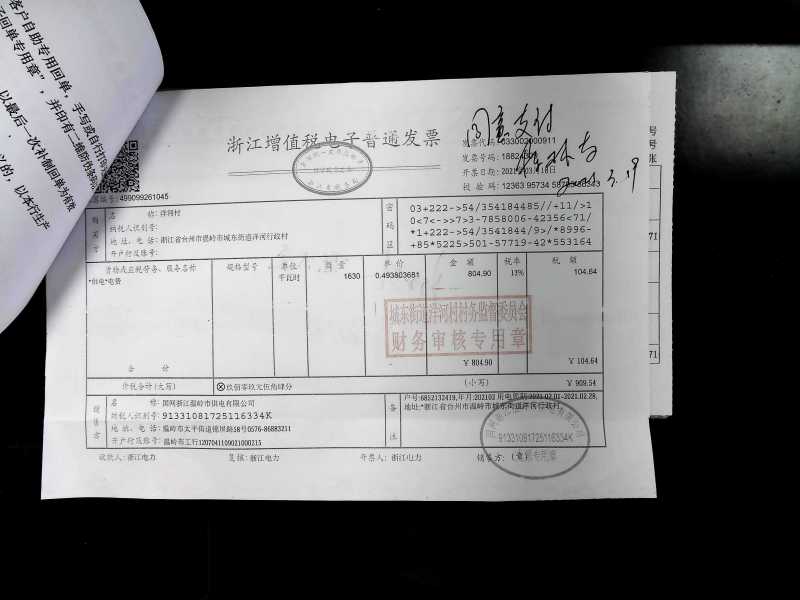 客户自助专用回单,手写或自行打
子回单专用章",并印有二维防伪
以最后一次补制回单为有效
的,以本行生产
浙江增值税电子普通发票
同意支付
发票代码:033002000911
发票号码:1882
开票日期:2021年03月18日
校 验 码:12363 95734
机器编号:499099261045
2021.3.19
购买方
名 称:洋河村
纳税人识别号:
地 址、电 话:浙江省台州市温岭市城东街道洋河行政村
开户行及账号:
密码区
03+222->54/354184485//+11/>1
0<7<->>7>3-7858006-42356<71/
*1+222->54/3541844/9>/*8996-
+85*5225>501-57719-42*553164
货物或应税劳务、服务名称 规格型号 单位 数 量 单 价 金 额 税率 税 额
*供电*电费 千瓦时 1630 0.493803681 804.90 13% 104.64
城东街道洋河村村务监督委员会
财务审核专用章
合 计 ¥ 804.90 ¥ 104.64
价税合计(大写) ⊗玖佰零玖元伍角肆分 (小写) ¥ 909.54
销售方
名 称:国网浙江温岭市供电有限公司
纳税人识别号:91331081725116334K
地 址、电 话:温岭市太平街道锦屏路58号0576-86883211
开户行及账号:温岭市工行1207041109021000215
备注
户号:6852132419,年月:202103 用电周期:2021.02.01-2021.02.28,
地址:*浙江省台州市温岭市城东街道洋河行政村。
91331081725116334K
发票专用章
收款人:浙江电力 复核:浙江电力 开票人:浙江电力 销售方:(章)
号
账
71
71